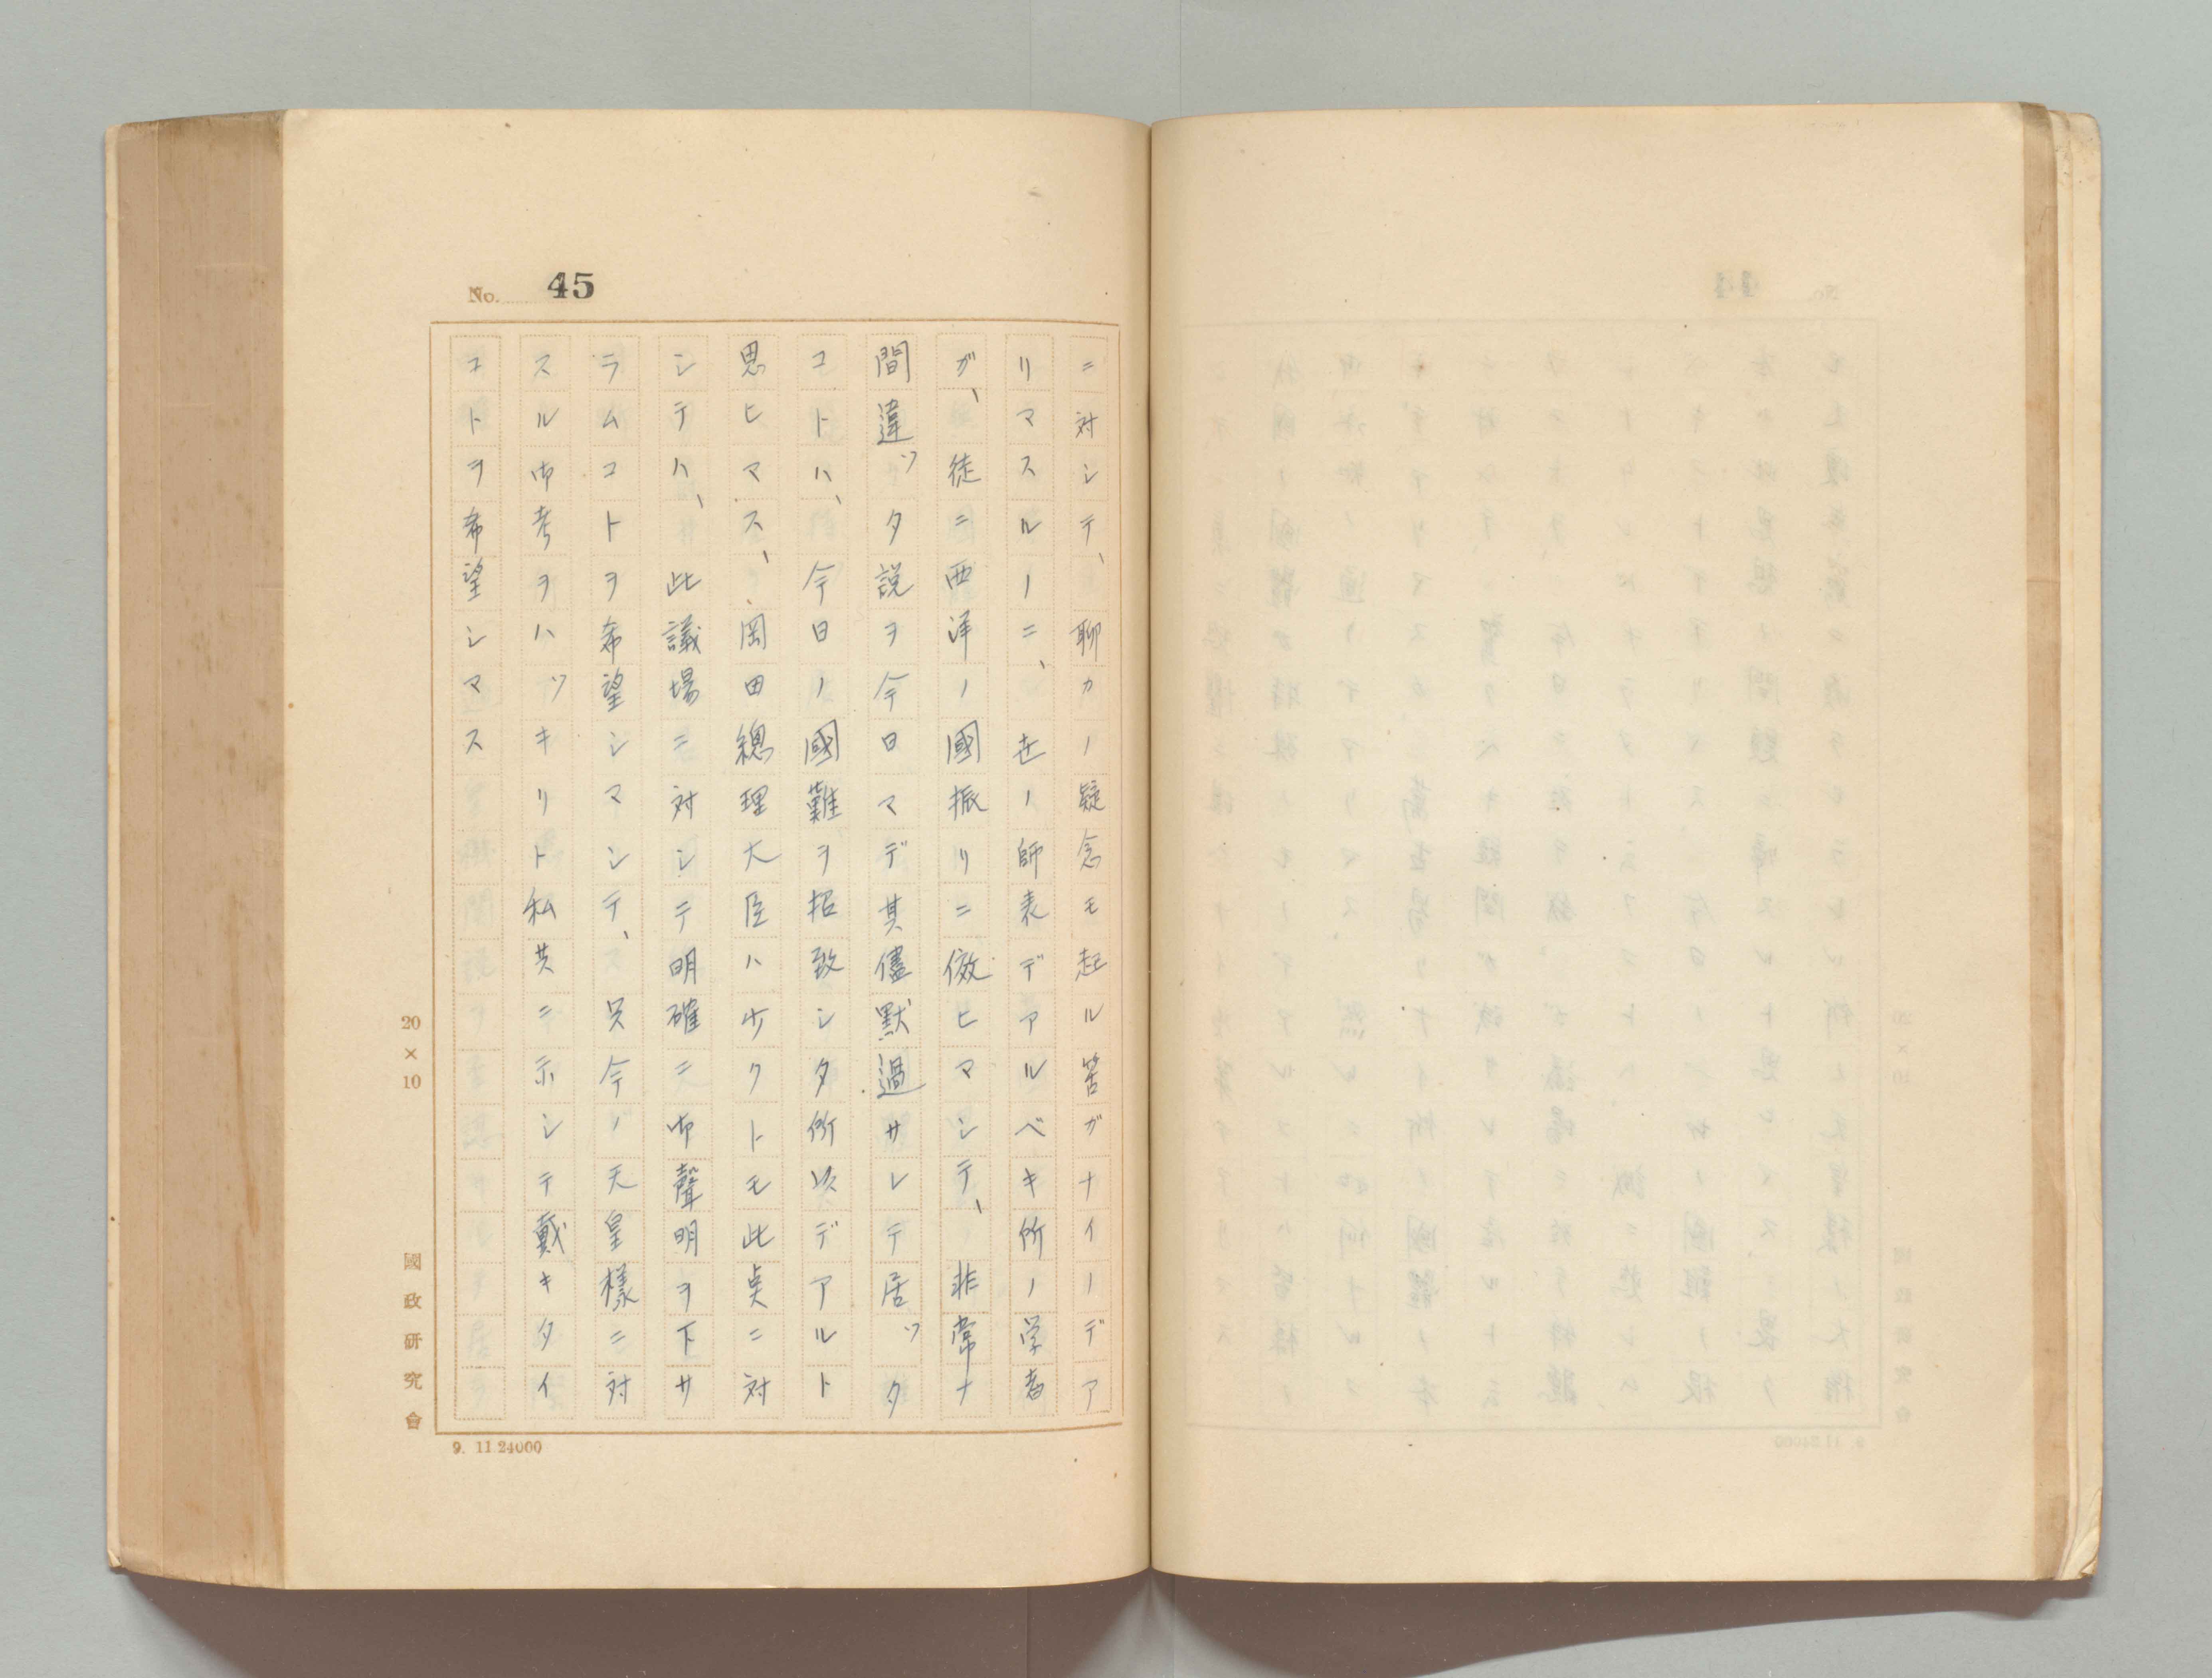 No. 45
ニ対シテ、聊カノ疑念モ起ル筈ガナイノデア
リマスルノニ、世ノ師表デアルベキ所ノ学者
ガ、徒ニ西洋ノ國振リニ倣ヒマシテ、非常ナ
間違ッタ説ヲ今日マデ其儘默過サレテ居ッタ
コトハ、今日ノ國難ヲ招致シタ所以デアルト
思ヒマス、岡田總理大臣ハ少クトモ此点ニ対
シテハ、此議場ニ対シテ明確ニ御聲明ヲ下サ
ラムコトヲ希望シマシテ、只今ノ天皇様ニ対
スル御考ヲハッキリト私共ニ示シテ戴キタイ
コトヲ希望シマス
20×10
國政研究會
9. 11 24000